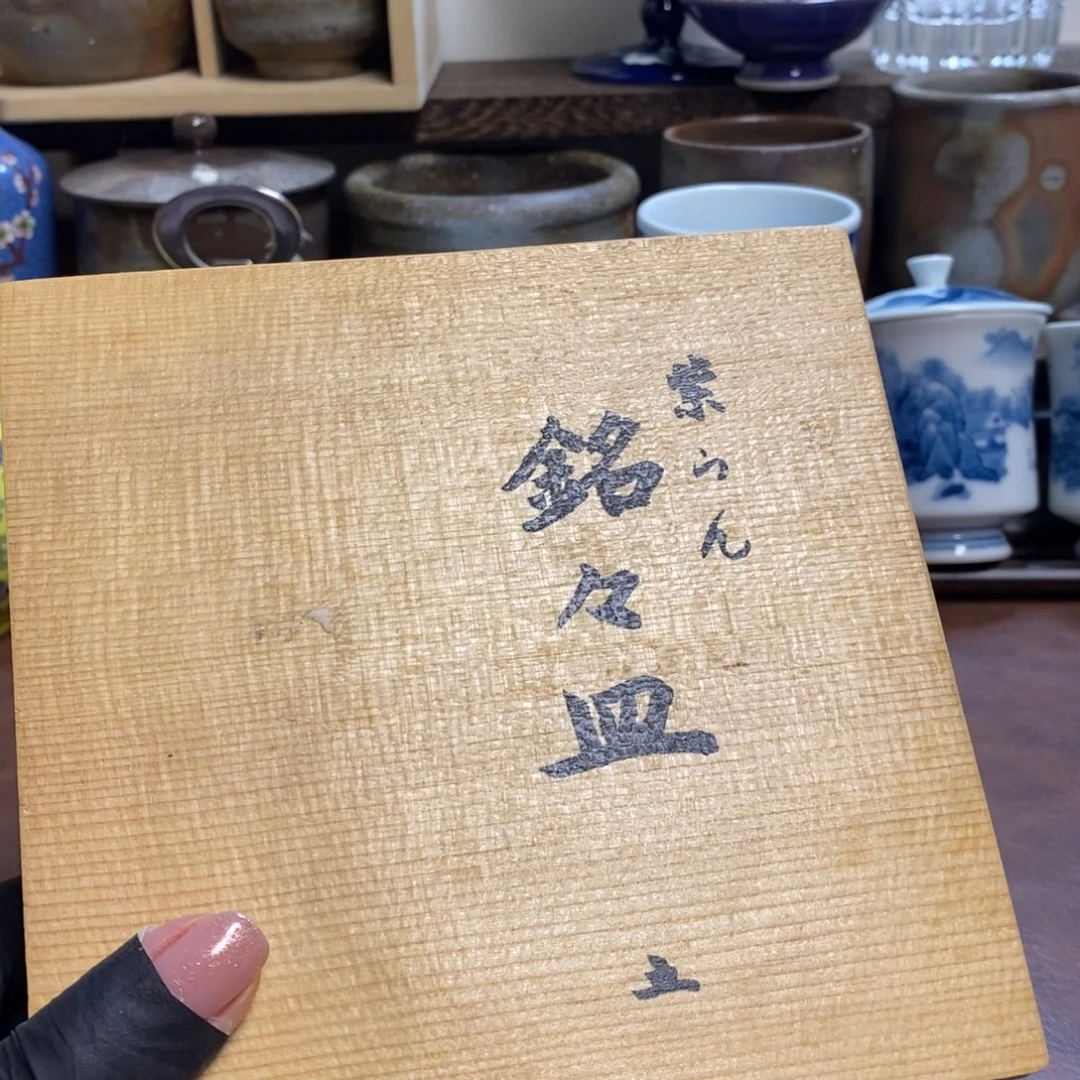 紫らん
銘々皿
五